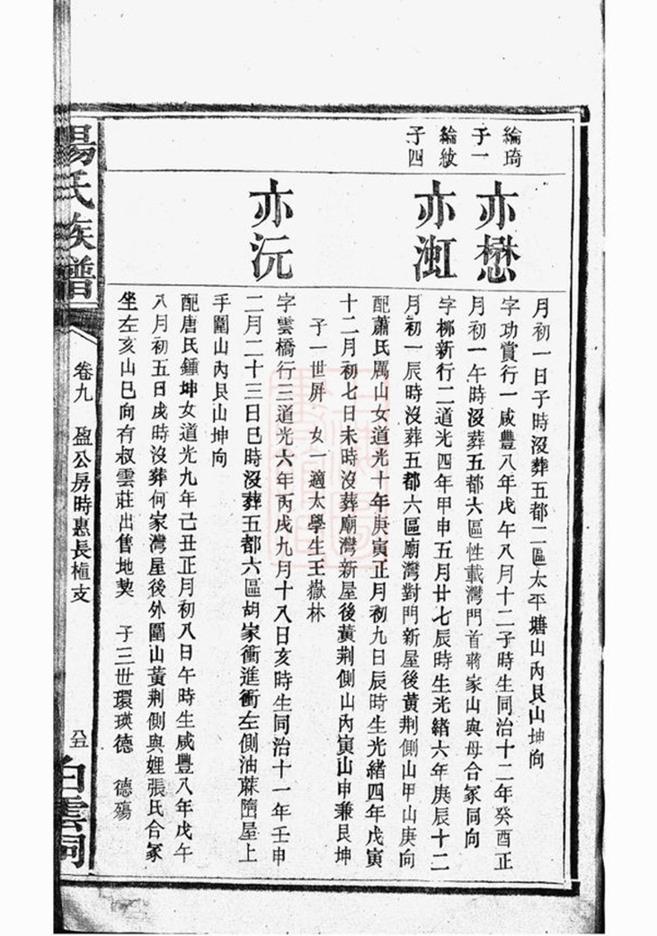 月初一日子時沒葬五都二區太平塘山內艮山坤向
綸琦
子一
亦懋
字功賞行一咸豐八年戊午八月十二子時生同治十二年癸酉正
月初一午時沒葬五都六區性載灣門首蔣家山與母合冢同向
綸紋
子四
亦虹
字栁新行二道光四年甲申五月廿七辰時生光緒六年庚辰十二
月初一辰時沒葬五都六區廟灣對門新屋後黃荆側山甲山庚向
配蕭氏厲山女道光十年庚寅正月初九日辰時生光緒四年戊寅
十二月初七日未時沒葬廟灣新屋後黃荆側山內寅山申兼艮坤
子一世屏 女一適太學生王嶽林
亦沅
字雲橋行三道光六年丙戌九月十八日亥時生同治十一年壬申
二月二十三日巳時沒葬五都六區胡家衝進衝左側油蔴躋屋上
手圍山內艮山坤向
配唐氏鍾坤女道光九年己丑正月初八日午時生咸豐八年戊午
八月初五日戌時沒葬何家灣屋後外圍山黃荆側與娌張氏合冢
坐左亥山巳向有叔雲莊出售地契 子三世環瑛德 德殤
楊氏族譜
卷九 盈公房時惠長植支
八五
白雲祠